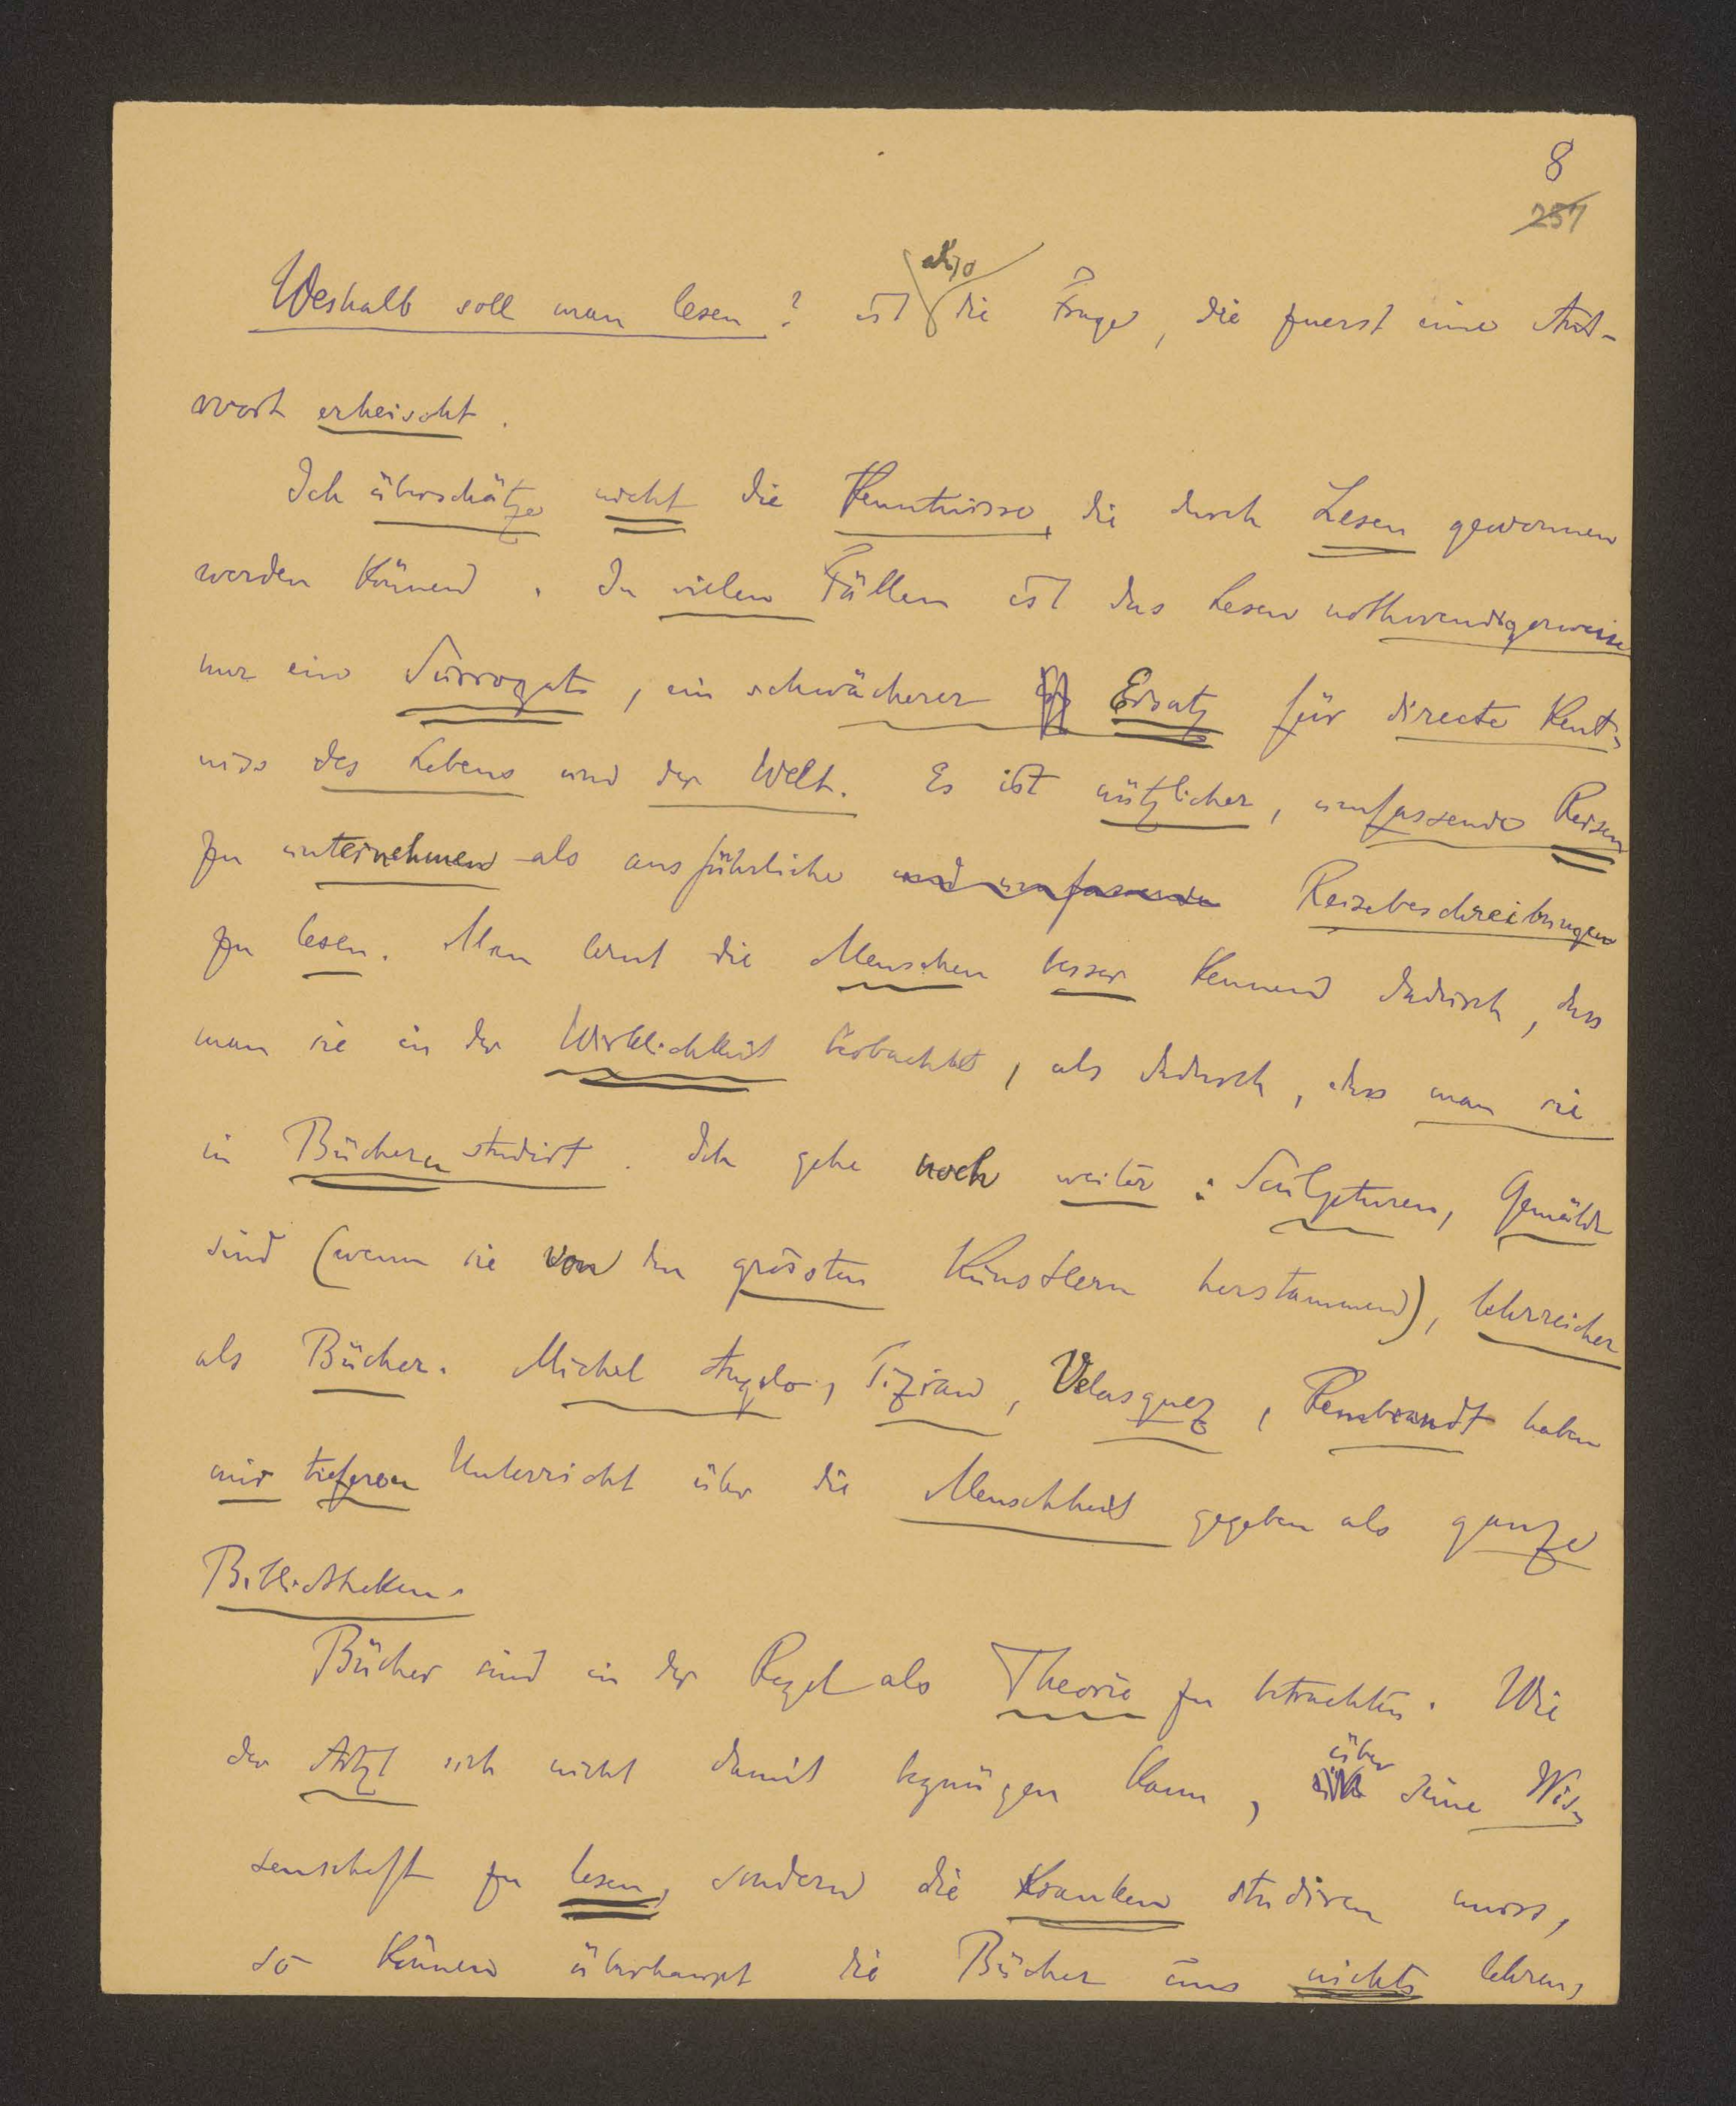 8
257
Weshalb soll man lesen? ist also die Frage, die zuerst eine Ant-
wort erheischt.
Ich überschätze nicht die Kenntnisse, die durch Lesen gewonnen
werden können. In vielen Fällen ist das Lesen nothwendigerweise
nur ein Surrogat, ein schwächerer Ersatz für directe Kent-
niss des Lebens und der Welt. Es ist nützlicher, umfassende Reisen
zu unternehmen als ausführliche und umfassende Reisebeschreibungen
zu lesen. Man lernt die Menschen besser kennen dadurch, dass
man sie in der Wirklichkeit beobachtet, als dadurch, dass man sie
in Büchern studirt. Ich gehe noch weiter: Sculpturen, Gemälde
sind (wenn sie von den grössten Künstlern herstammen), lehrreicher
als Bücher. Michel Angelo, Tizian, Velasquez, Rembrandt haben
mir tieferen Unterricht über die Menschheit gegeben als ganze
Bibliotheken.
Bücher sind in der Regel als Theorie zu betrachten. Wie
der Artzt sich nicht damit begnügen kann, über seine Wis-
senschaft zu lesen, sondern die Kranken studiren muss,
so können überhaupt die Bücher uns nichts lehren,